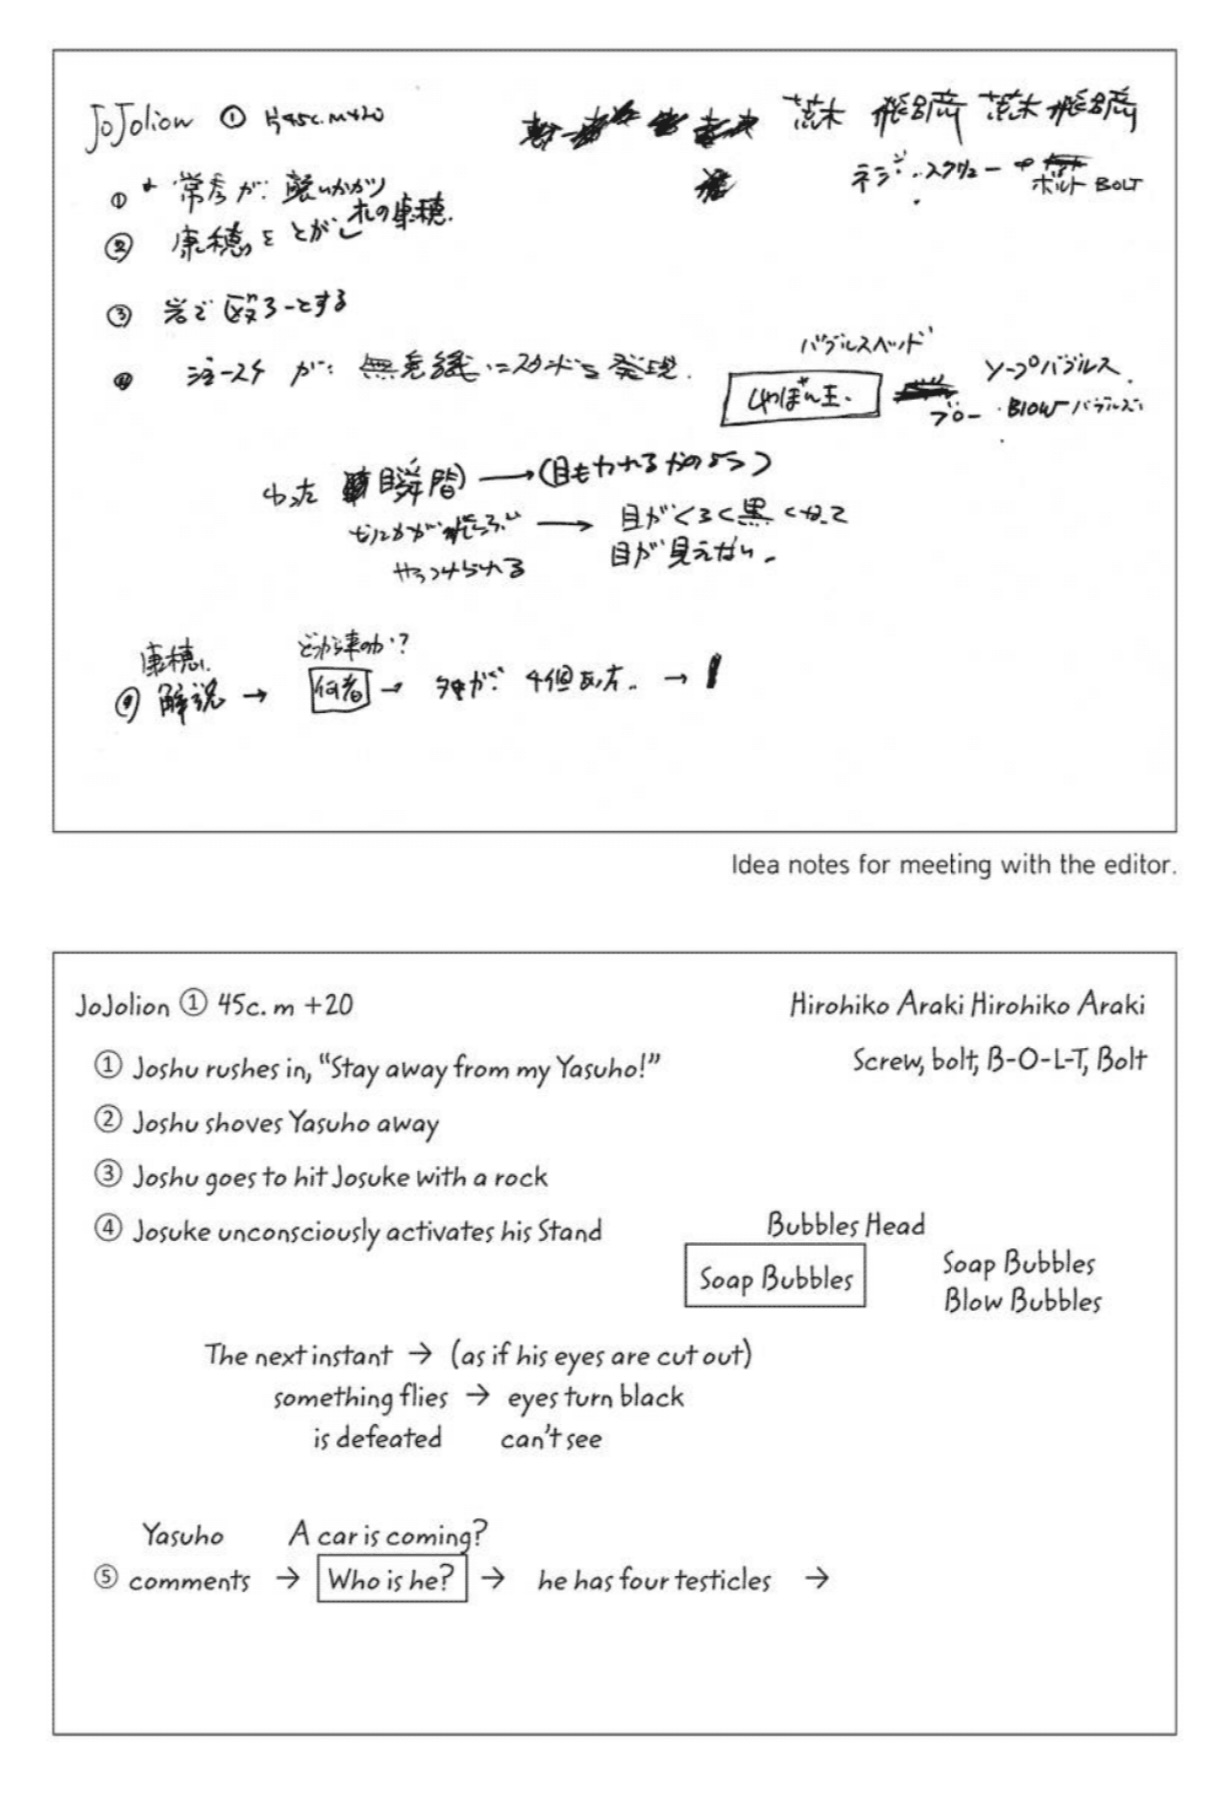 JoJolion ① 45c.m+20
荒木 飛呂彦 荒木 飛呂彦
ネジ スクリュー
ボルト BOLT
① 常秀が 襲いかかり
オレの康穂
② 康穂を どかし
③ 岩で 殴ろーとする
④ ジョースケ が 無意識にスタンドを発現.
バブルスヘッド
しゃぼん玉.
ソープバブルス
ブロー BLOW バブルス
瞬間 → (目をわれるかのよう)
なにかが飛ぶ → 目がくろく黒くなって
やっつけられる 目が見えない。
康穂 どっから来のか?
解説 → 何者 → タマが 4個あった. →
Idea notes for meeting with the editor.
JoJolion ① 45c. m +20
Hirohiko Araki Hirohiko Araki
① Joshu rushes in, "Stay away from my Yasuho!"
Screw, bolt, B-O-L-T, Bolt
② Joshu shoves Yasuho away
③ Joshu goes to hit Josuke with a rock
④ Josuke unconsciously activates his Stand
Bubbles Head
Soap Bubbles
Soap Bubbles
Blow Bubbles
The next instant → (as if his eyes are cut out)
something flies → eyes turn black
is defeated can't see
Yasuho A car is coming?
⑤ comments → Who is he? → he has four testicles →